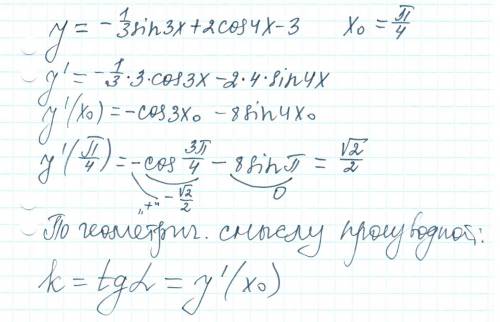 y = -1/3 sin3x + 2cos4x - 3    x₀ = π/4
y' = -1/3 · 3 · cos3x - 2 · 4 · sin4x
y'(x₀) = -cos3x₀ - 8sin4x₀
y'(π/4) = -cos 3π/4 - 8sinπ = √2/2
"+" -√2/2    0
По геометрич. смыслу производной:
k = tgα = y'(x₀)